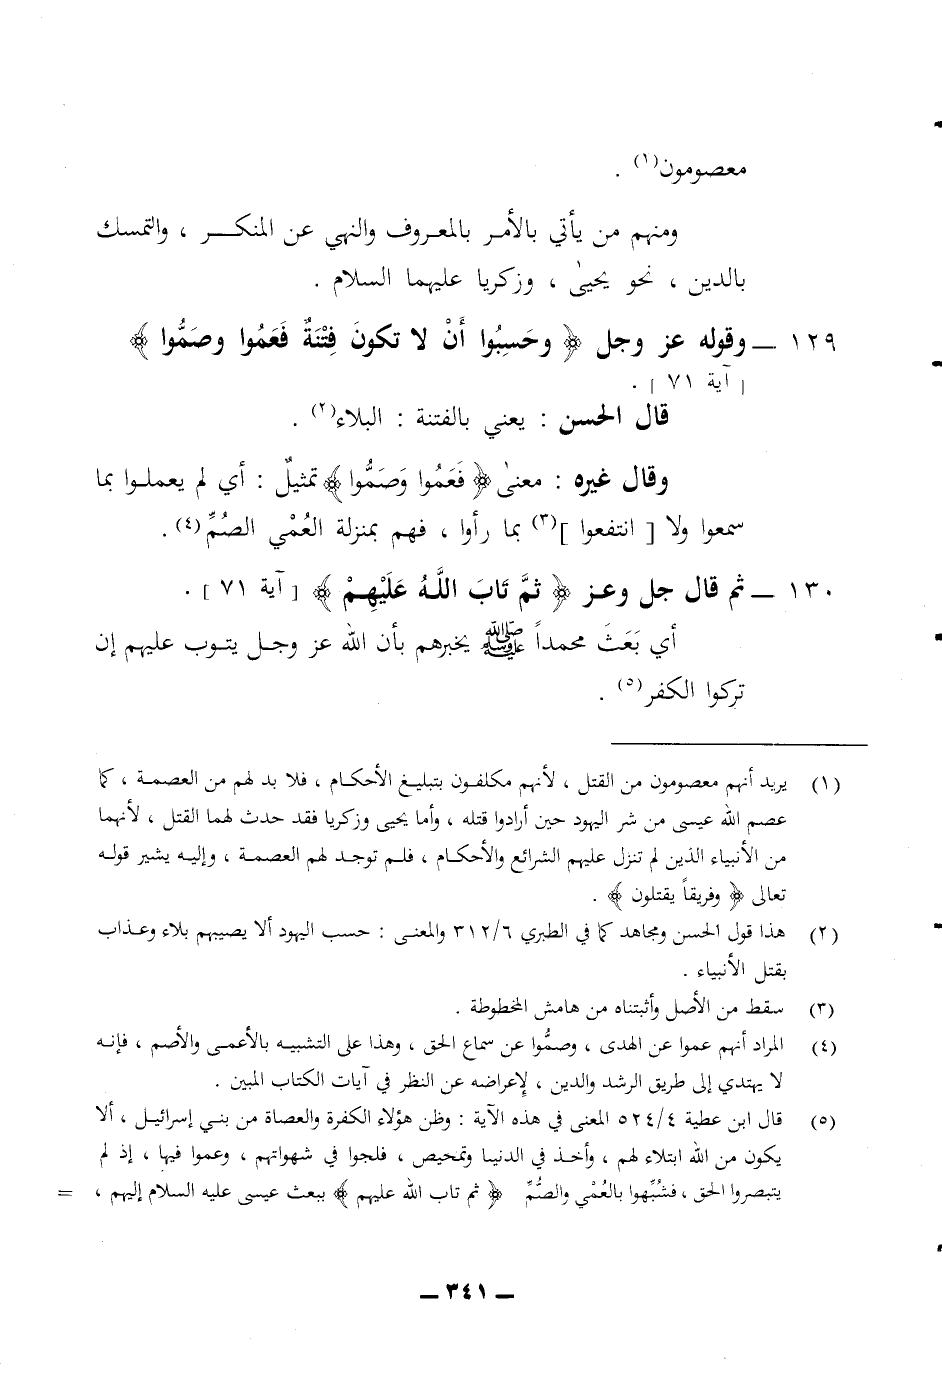 معصومون(١) .
ومنهم من يأتي بالأمر بالمعروف والنهي عن المنكر ، والتمسك
بالدين ، نحو يحيىٰ ، وزكريا عليهما السلام .
١٢٩ ــ وقوله عز وجل ﴿ وحَسِبُوا أَنْ لا تكونَ فِتْنَةٌ فَعَمُوا وصَمُّوا ﴾
[ آية ٧١ ] .
قال الحسن : يعني بالفتنة : البلاء(٢) .
وقال غيره : معنىٰ ﴿ فَعَمُوا وَصَمُّوا ﴾ تمثيلٌ : أي لم يعملوا بما
سمعوا ولا [ انتفعوا ](٣) بما رأوا ، فهم بمنزلة العُمْي الصُمِّ(٤) .
١٣٠ ــ ثم قال جل وعز ﴿ ثمَّ تَابَ اللَّهُ عَلَيْهِمْ ﴾ [ آية ٧١ ] .
أي بَعَثَ محمداً ﷺ يخبرهم بأن الله عز وجل يتوب عليهم إن
تركوا الكفر(٥) .
(١) يريد أنهم معصومون من القتل ، لأنهم مكلفون بتبليغ الأحكام ، فلا بد لهم من العصمة ، كما
عصم الله عيسى من شر اليهود حين أرادوا قتله ، وأما يحيى وزكريا فقد حدث لهما القتل ، لأنهما
من الأنبياء الذين لم تنزل عليهم الشرائع والأحكام ، فلم توجد لهم العصمة ، وإليه يشير قوله
تعالى ﴿ وفريقاً يقتلون ﴾ .
(٢) هذا قول الحسن ومجاهد كما في الطبري ٣١٢/٦ والمعنى : حسب اليهود ألا يصيبهم بلاء وعذاب
بقتل الأنبياء .
(٣) سقط من الأصل وأثبتناه من هامش المخطوطة .
(٤) المراد أنهم عموا عن الهدى ، وصمُّوا عن سماع الحق ، وهذا على التشبيه بالأعمى والأصم ، فإنه
لا يهتدي إلى طريق الرشد والدين ، لإعراضه عن النظر في آيات الكتاب المبين .
(٥) قال ابن عطية ٥٢٤/٤ المعنى في هذه الآية : وظن هؤلاء الكفرة والعصاة من بني إسرائيل ، ألا
يكون من الله ابتلاء لهم ، وأخذ في الدنيا وتمحيص ، فلجوا في شهواتهم ، وعموا فيها ، إذ لم
يتبصروا الحق ، فشُبِّهوا بالعُمْي والصُّمِّ ﴿ ثم تاب الله عليهم ﴾ ببعث عيسى عليه السلام إليهم ، =
ــ ٣٤١ ــ